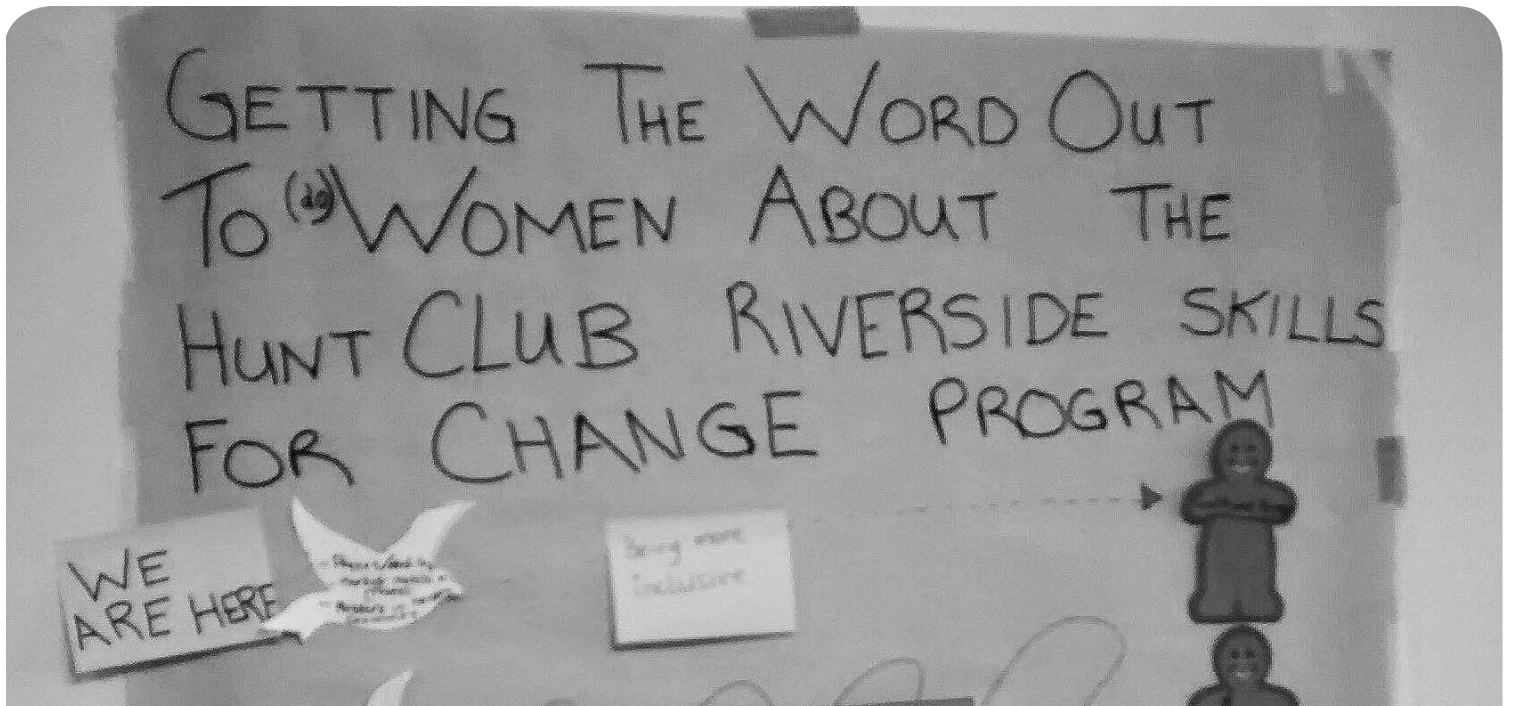 GETTING THE WORD OUT
TO WOMEN ABOUT THE
HUNT CLUB RIVERSIDE SKILLS
FOR CHANGE PROGRAM
WE
ARE HERE
being more
inclusive